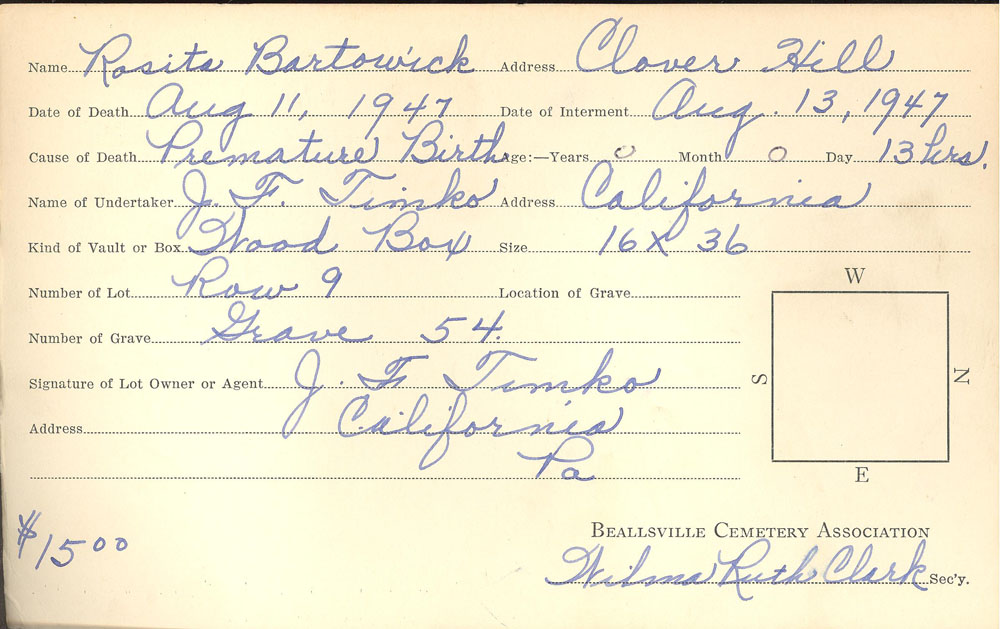 Name Rosita Bartowick Address Clover Hill
Date of Death Aug 11, 1947 Date of Interment Aug. 13, 1947
Cause of Death Premature Birth Age:—Years 0 Month 0 Day 13 hrs.
Name of Undertaker J. F. Timko Address California
Kind of Vault or Box Wood Box Size 16 x 36
Number of Lot Row 9 Location of Grave
Number of Grave Grave 54.
Signature of Lot Owner or Agent J. F Timko
Address California
Pa
W
S
N
E
$15 00
Beallsville Cemetery Association
Wilma Ruth Clark Sec'y.